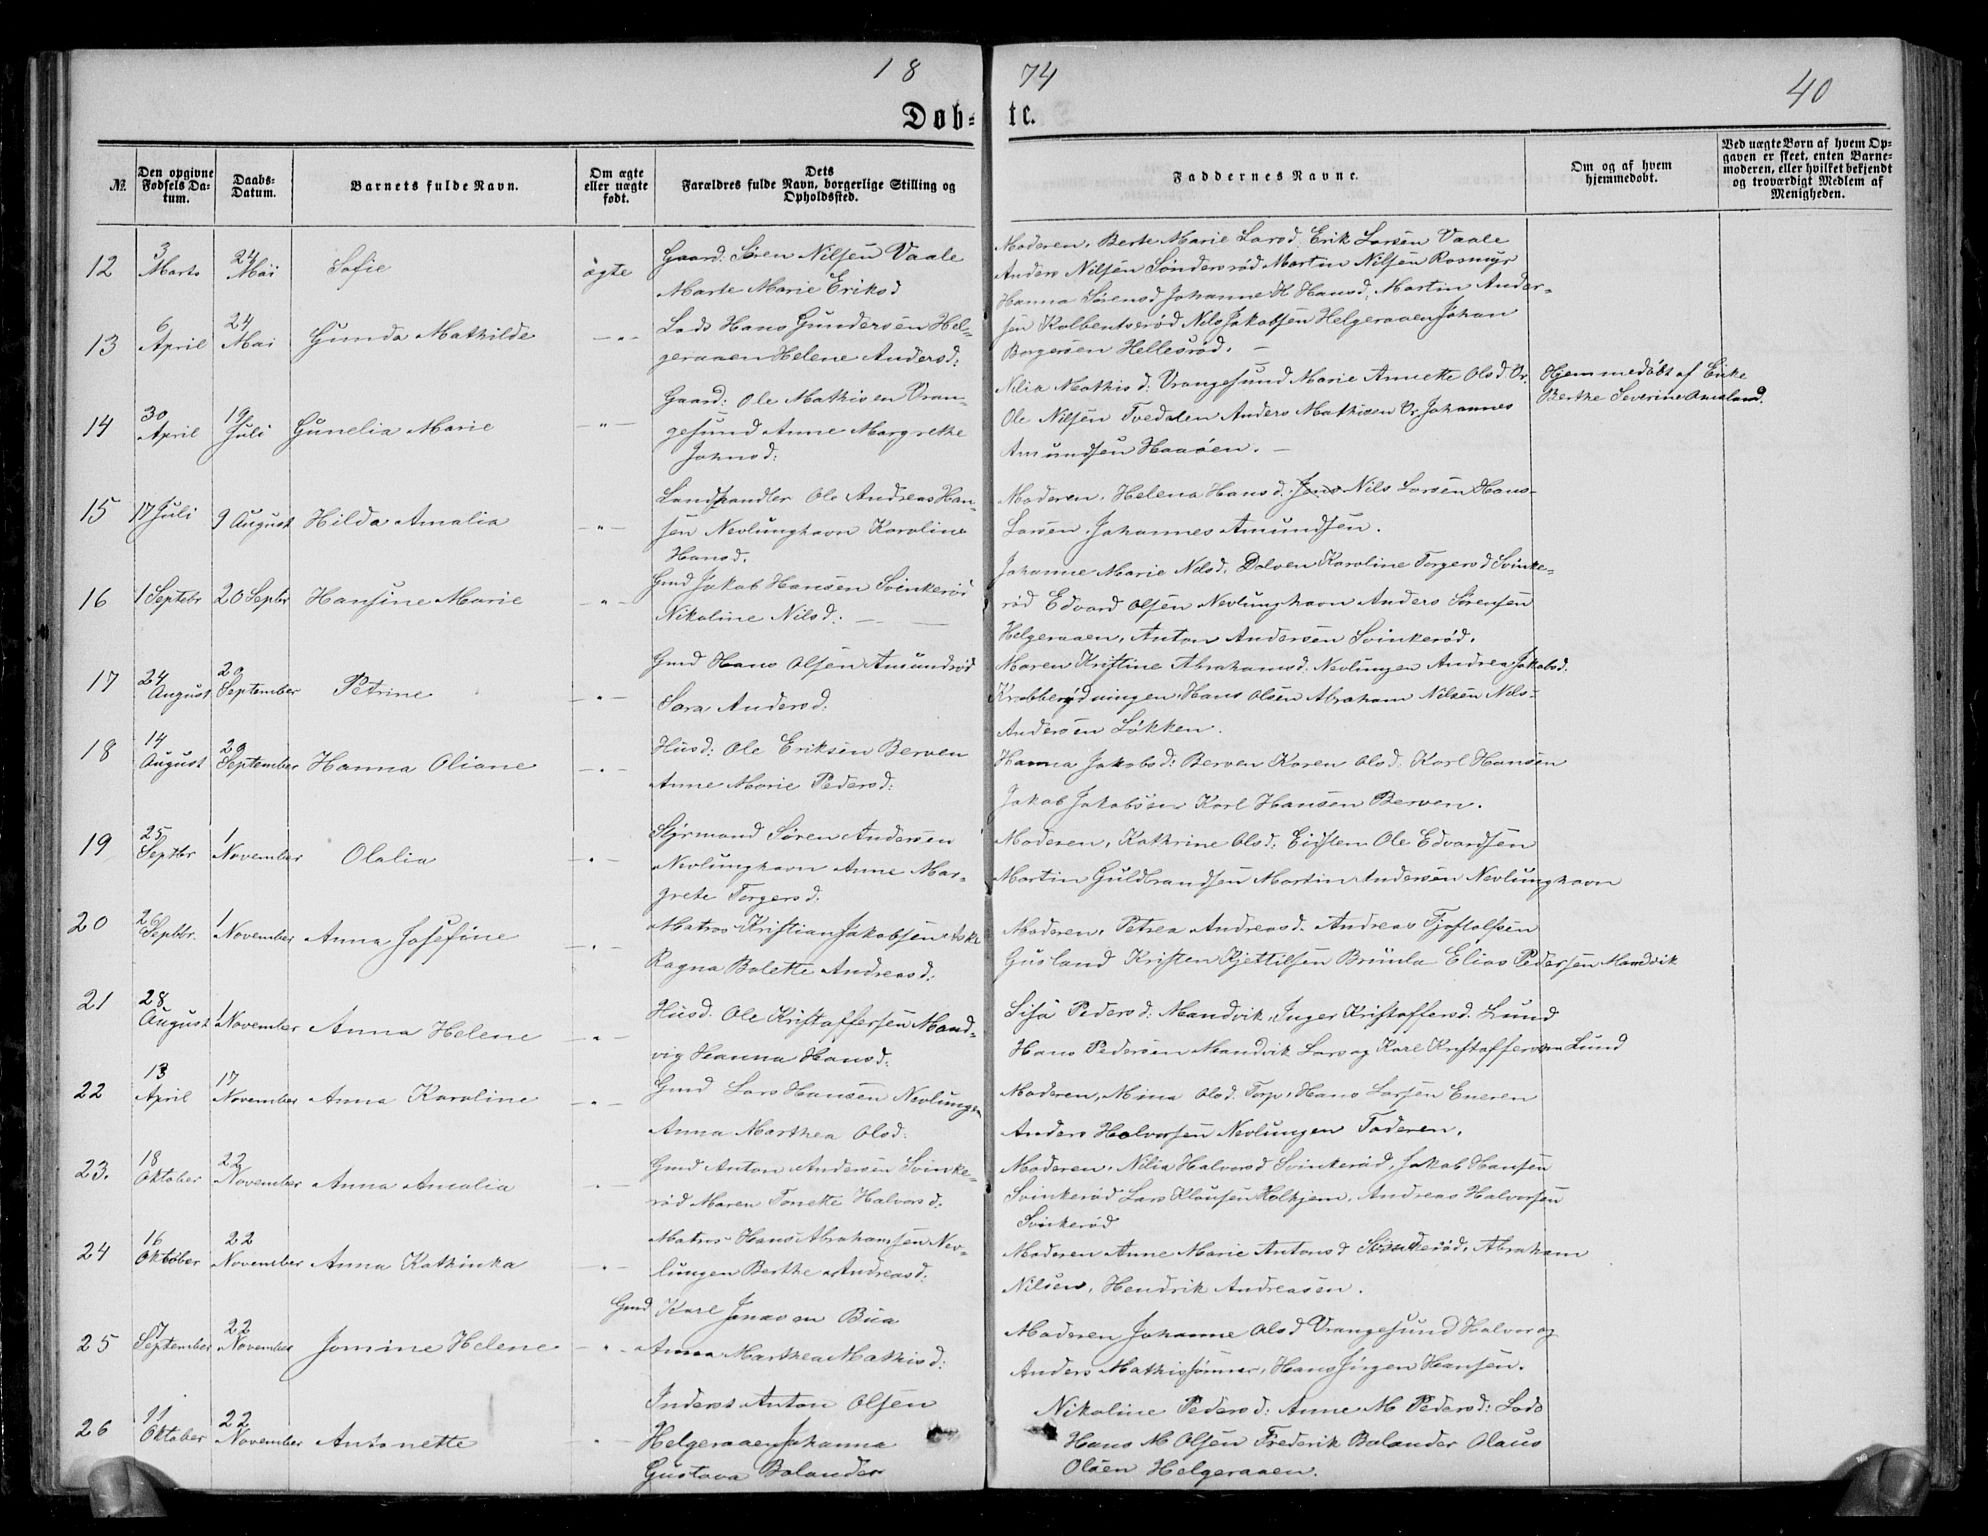 1874
40
Døbte.
№
Den opgivne Fødsels Datum.
Daabs-Datum.
Barnets fulde Navn.
Om ægte eller uægte født.
Dets Forældres fulde Navn, borgerlige Stilling og Opholdssted.
Faddernes Navne.
Om og af hvem hjemmedøbt.
Ved uægte Børn af hvem Opgaven er skeet, enten Barnemoderen, eller hvilket bekjendt og troværdigt Medlem af Menigheden.
12
3 Marts
24 Mai
Sofie
ægte
Gaard: Søren Nilsen Vaale
Marte Marie Eriksd
Moderen, Berte Marie Larsd. Erik Larsen Vaale
Anders Nilsen Søndersrød Martin Nilsen Rosmyr
Hanna Sørensd Johanne H Hansd, Martin Ander-
13
6 April
24 Mai
Gunda Mathilde
— " —
Lods Hans Gundersen Hel-
geraaen Helene Andersd:
sen Kolbentserød Nils Jakobsen Helgeraaen Johan
Borgersen Hellesrød. —
14
30 April
19 Juli
Gunelia Marie
— " —
Gaard: Ole Mathisen Vran-
gesund Anne Margrethe
Johnsd:
Nilia Mathisd: Vrangesund Marie Annette Olsd Vr.
Ole Nilsen Tvedalen Anders Mathisen Vr. Johannes
Amundsen Haaøen. —
Hjemmedøbt af Enke
Berthe Severine Omsland.
15
17 Juli
9 August
Hilda Amalia
— " —
Landhandler Ole Andreas Han-
sen Nevlunghavn Karoline
Hansd.
Moderen, Helena Hansd. Jens Nils Larsen Hans-
Larsen, Johannes Amundsen.
16
1 Septebr
20 Septbr
Hansine Marie
— " —
Gmd Jakob Hansen Svinkerød
Nikoline Nilsd: —
Johanne Marie Nilsd. Dalven Karoline Torgersd Svinke-
rød Edvard Olsen Nevlunghavn Anders Sørensen
Helgeraaen, Anton Andersen Svinkerød.
17
24 August
20 September
Petrine
— " —
Gmd Hans Olsen Amundrød
Sara Andersd.
Maren Kristine Abrahamsd. Nevlungen Andrea Jakobsd.
Krabberydningen Hans Olsen Abraham Nilsen Nils-
Andersen Løkken.
18
14 August
20 September
Hanna Oliane
— " —
Husd: Ole Eriksen Berven
Anne Marie Pedersd:
Hanna Jakobsd: Berven Karen Olsd. Karl Hansen
Jakob Jakobsen Karl Hansen Berven.
19
25 Septbr
1 November
Olalia
— " —
Styrmand Søren Andersen
Nevlunghavn Anne Mar-
grete Torgersd.
Moderen, Kathrine Olsd: Eidsten Ole Edvardsen
Martin Guldbrandsen Martin Andersen Nevlunghavn
20
26 Septbr.
1 November
Anna Josefine
— " —
Matros Kristian Jakobsen Aske
Ragna Bolette Andreasd:
Moderen, Petrea Andreasd. Andreas Tjøstolfsen
Gusland Kristen Kjettilsen Brunla Elias Pedersen Mandvik
21
28 August
1 November
Anna Helene
— " —
Husd. Ole Kristoffersen Mand-
vig Hanna Hansd:
Lisa Pedersd. Mandvik, Inger Kristoffersd. Lund
Hans Pedersen Mandvik Lars og Karl Kristoffersen Lund
22
13 April
17 November
Anna Karoline
— " —
Gmd Lars Hansen Nevlungen
Anna Marthea Olsd.
Moderen, Mina Olsd. Torp, Hans Larsen Eneren
Anders Halvorsen Nevlungen Faderen.
23.
18 Oktober
22 November
Anna Amalia
— " —
Gmd Anton Andersen Svinke-
rød Maren Tonette Halvorsd.
Moderen, Nilia Halvorsd Svinkerød, Jakob Hansen
Svinkerød Lars Klausen Holkjem, Andreas Halvorsen
Svinkerød
24
16 Oktober
22 November
Anna Kathinka
— " —
Matros Hans Abrahamsen Nev-
lungen Berthe Andreasd:
Moderen Anne Marie Antonsd Svinkerød, Abraham
Nilsen, Hendrik Andreasen.
25
7 September
22 November
Jomine Helene
— " —
Gmd Karl Jonassen Bua
Anna Marthea Mathisd:
Moderen Johanne Olsd Vrangesund Halvor og
Anders Mathissønner, Hans Jørgen Hansen.
26
11 Oktober
22 November
Antonette
— " —
Inderst Anton Olsen
Helgeraaen Johanna
Gustava Bolander
Nikoline Pedersd: Anne M Pedersd: Lods
Hans M Olsen Frederik Bolander Olaus
Olsen Helgeraaen.